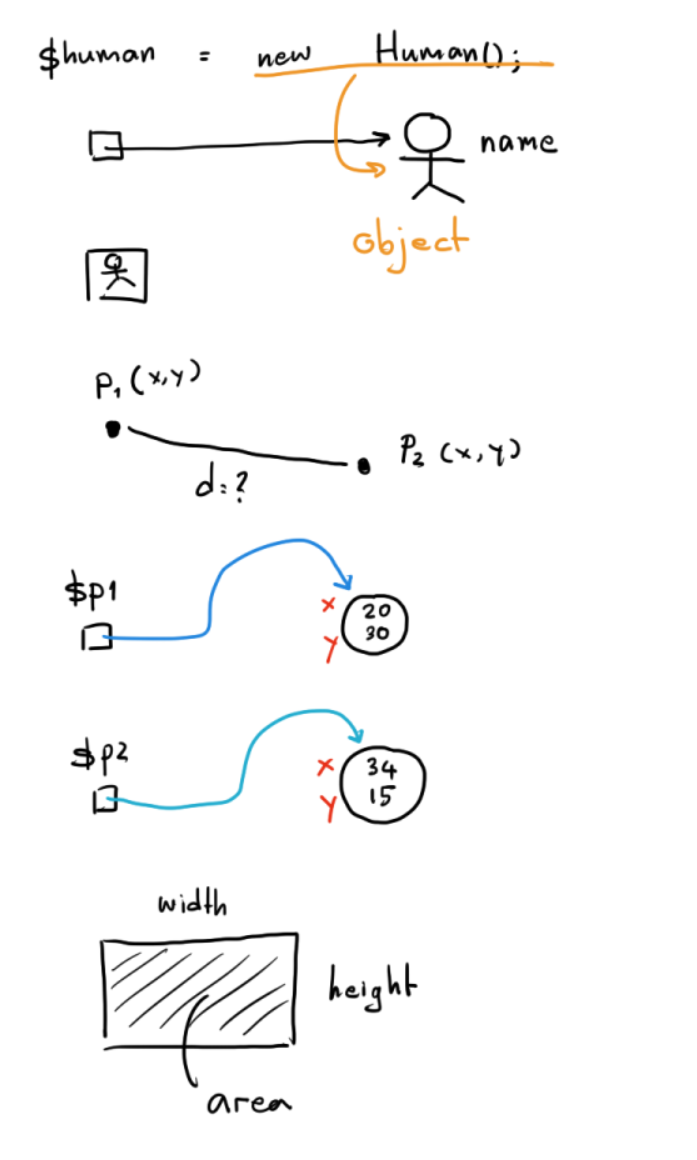 $human = new Human();
name
object
P1 (x,y)
P2 (x,y)
d=?
$p1
x 20
y 30
$p2
x 34
y 15
width
height
area